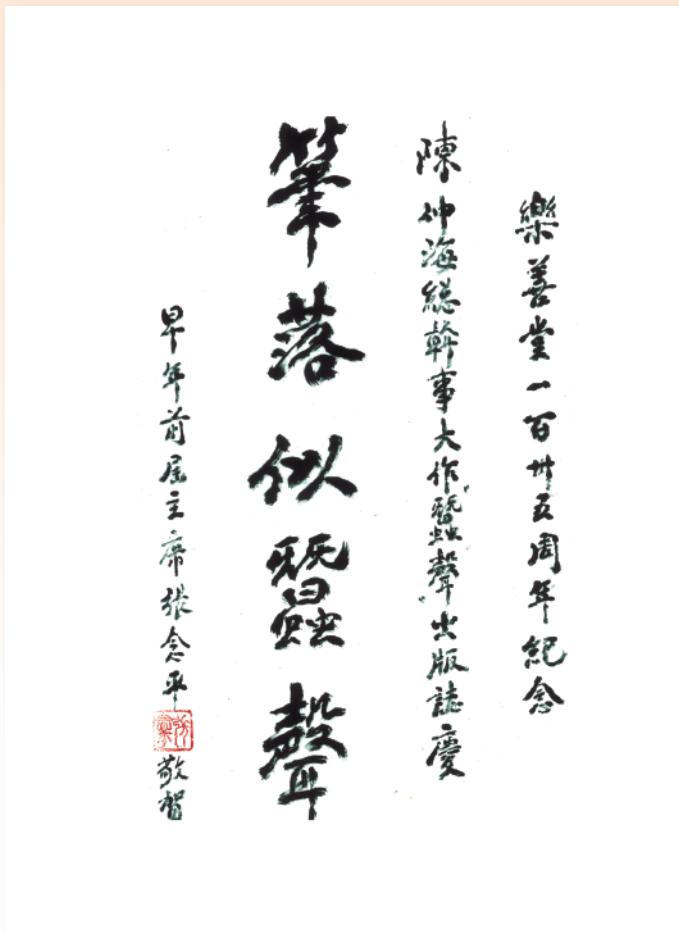 樂善堂一百卅五周年紀念
陳仲海總幹事大作“蠶聲”出版誌慶
筆落似蠶聲
早年前屆主席張念平敬賀